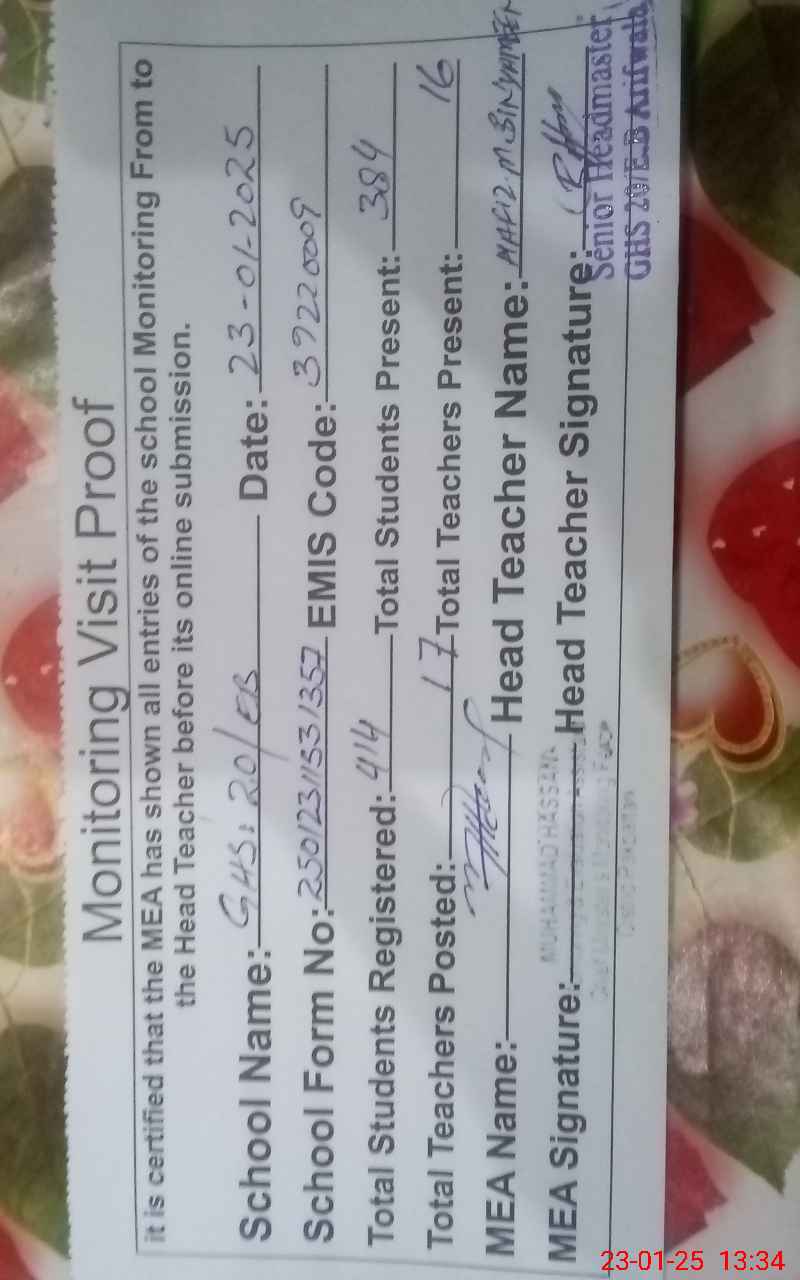 Monitoring Visit Proof
it is certified that the MEA has shown all entries of the school Monitoring From to
the Head Teacher before its online submission.
School Name: GHS: 20/EB Date: 23-01-2025
School Form No: 25012311531357 EMIS Code: 39220009
Total Students Registered: 414 Total Students Present: 384
Total Teachers Posted: 17 Total Teachers Present: 16
MEA Name: Head Teacher Name: HAFIZ.M.BINYAMEEN
MEA Signature: Head Teacher Signature:
MUHAMMAD HASSAN
Senior Headmaster
GHS 20/E.B Arifwala
23-01-25 13:34